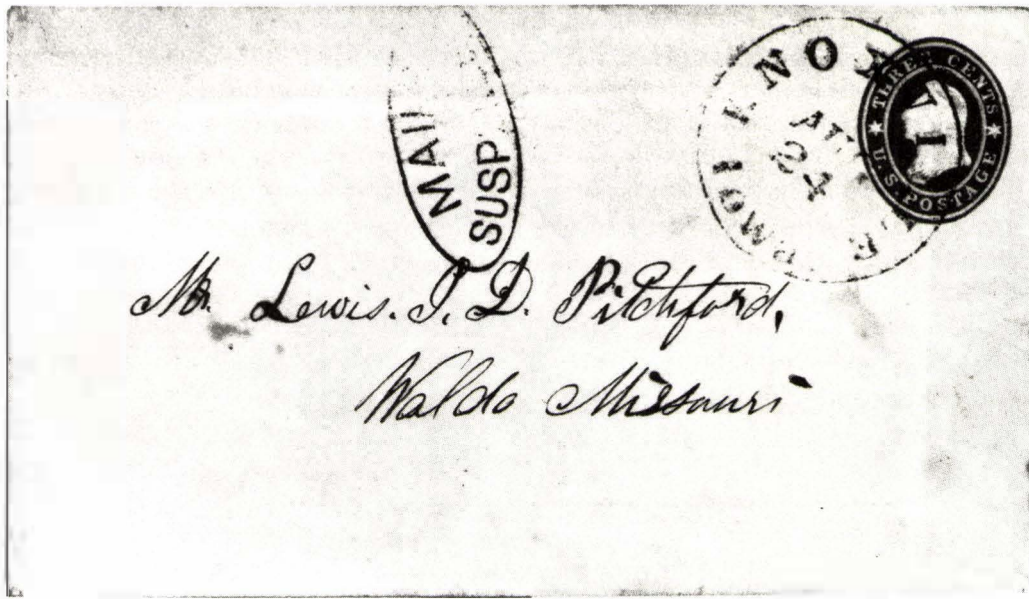 MAIL
SUSP
AU
24
THREE CENTS
U.S. POSTAGE
VI
Mr. Lewis. J. D. Pitchford,
Waldo Missouri